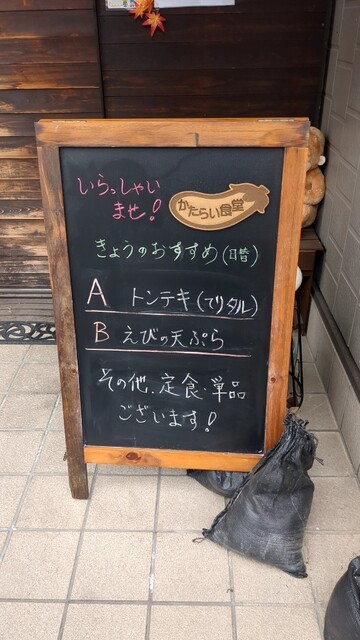 いらっしゃい
ませ!
かたらい食堂
きょうのおすすめ(日替)
A トンテキ(てりタル)
B えびの天ぷら
その他、定食・単品
ございます!